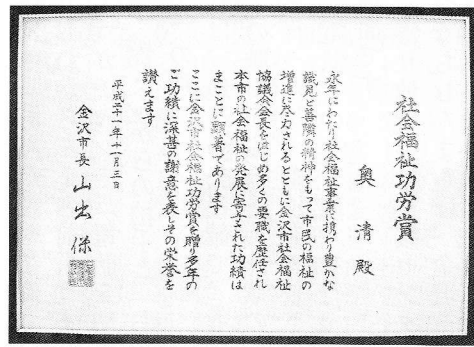 社会福祉功労賞
奥 清 殿
永年にわたり社会福祉事業に携わり豊かな
識見と善隣の精神をもって市民の福祉の
増進に尽力されるとともに金沢市社会福祉
協議会会長をはじめ多くの要職を歴任され
本市の社会福祉の発展に寄与された功績は
まことに顕著であります
ここに金沢市社会福祉功労賞を贈り多年の
ご功績に深甚の謝意を表しその栄誉を
讃えます
平成二十一年十一月三日
金沢市長 山出 保